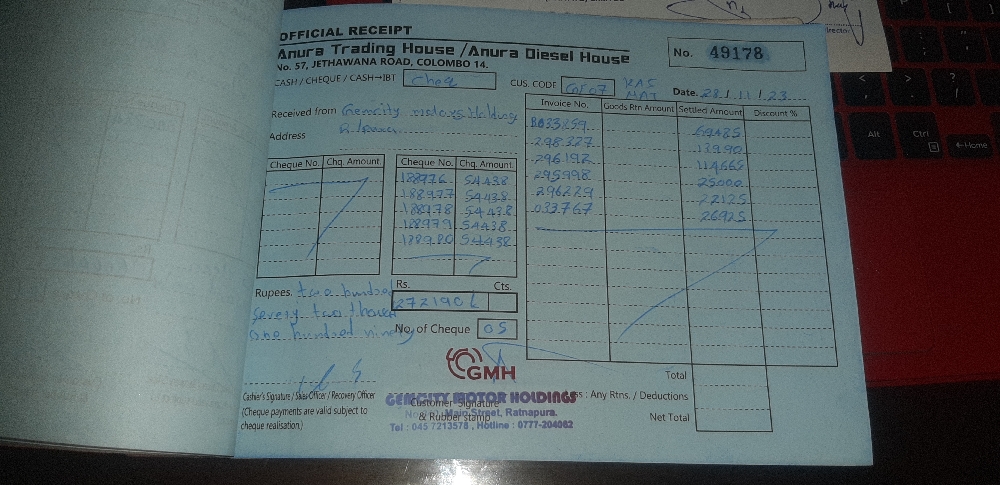 OFFICIAL RECEIPT
Anura Trading House / Anura Diesel House
No. 57, JETHAWANA ROAD, COLOMBO 14.
No. 49178
CASH / CHEQUE / CASH→IBT Cheq
CUS. CODE
Date. 28/11/23
Received from Gemcity motors Holdings
Address
Cheque No. Chq. Amount
Cheque No. Chq. Amount.
188976 54438
188977 54438
188978 54438
188979 54438
188980 54438
Invoice No. Goods Rtn Amount Settled Amount Discount %
298327 13990
296192 114665
295998 25000
296229 22125
033767 26925
Rs. Cts.
272190
Rupees. two hundred
seventy two thousand
one hundred ninety
No. of Cheque 05
GMH
Cashier's Signature / Sales Officer / Recovery Officer
(Cheque payments are valid subject to
cheque realisation.)
GEMCITY MOTOR HOLDINGS
Customer Signature
& Rubber stamp
Main Street, Ratnapura.
Tel : 045 7213578, Hotline : 0777-204062
Total
: Any Rtns. / Deductions
Net Total
Alt
Ctrl
Home